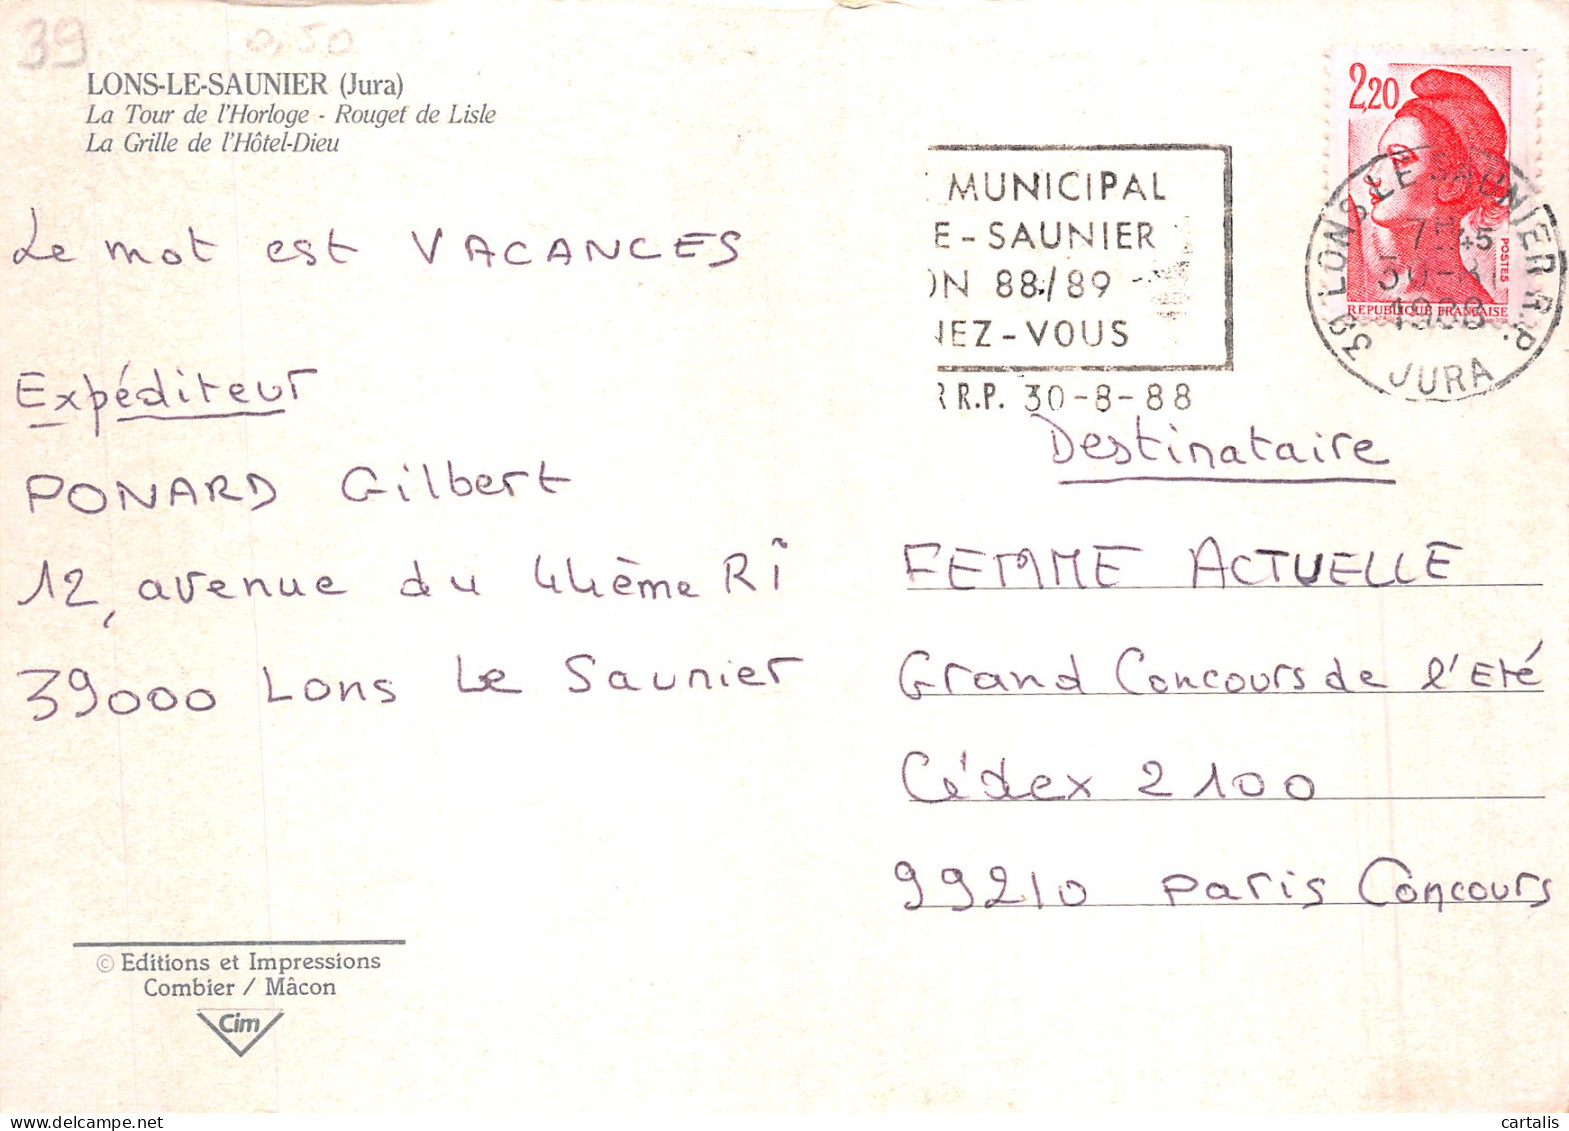 39
0,50
LONS-LE-SAUNIER (Jura)
La Tour de l'Horloge - Rouget de Lisle
La Grille de l'Hôtel-Dieu
Le mot est VACANCES
Expéditeur
PONARD Gilbert
12, avenue du 44ème RI
39000 Lons Le Saunier
© Editions et Impressions
Combier / Mâcon
Cim
MUNICIPAL
E-SAUNIER
ON 88/89
NEZ-VOUS
R R.P. 30-8-88
2,20
POSTES
REPUBLIQUE FRANÇAISE
39 LONS LE SAUNIER R.P.
30-8
1988
JURA
Destinataire
FEMME ACTUELLE
Grand Concours de l'Eté
Cédex 2100
99210 Paris Concours
cartalis
delcampe.net